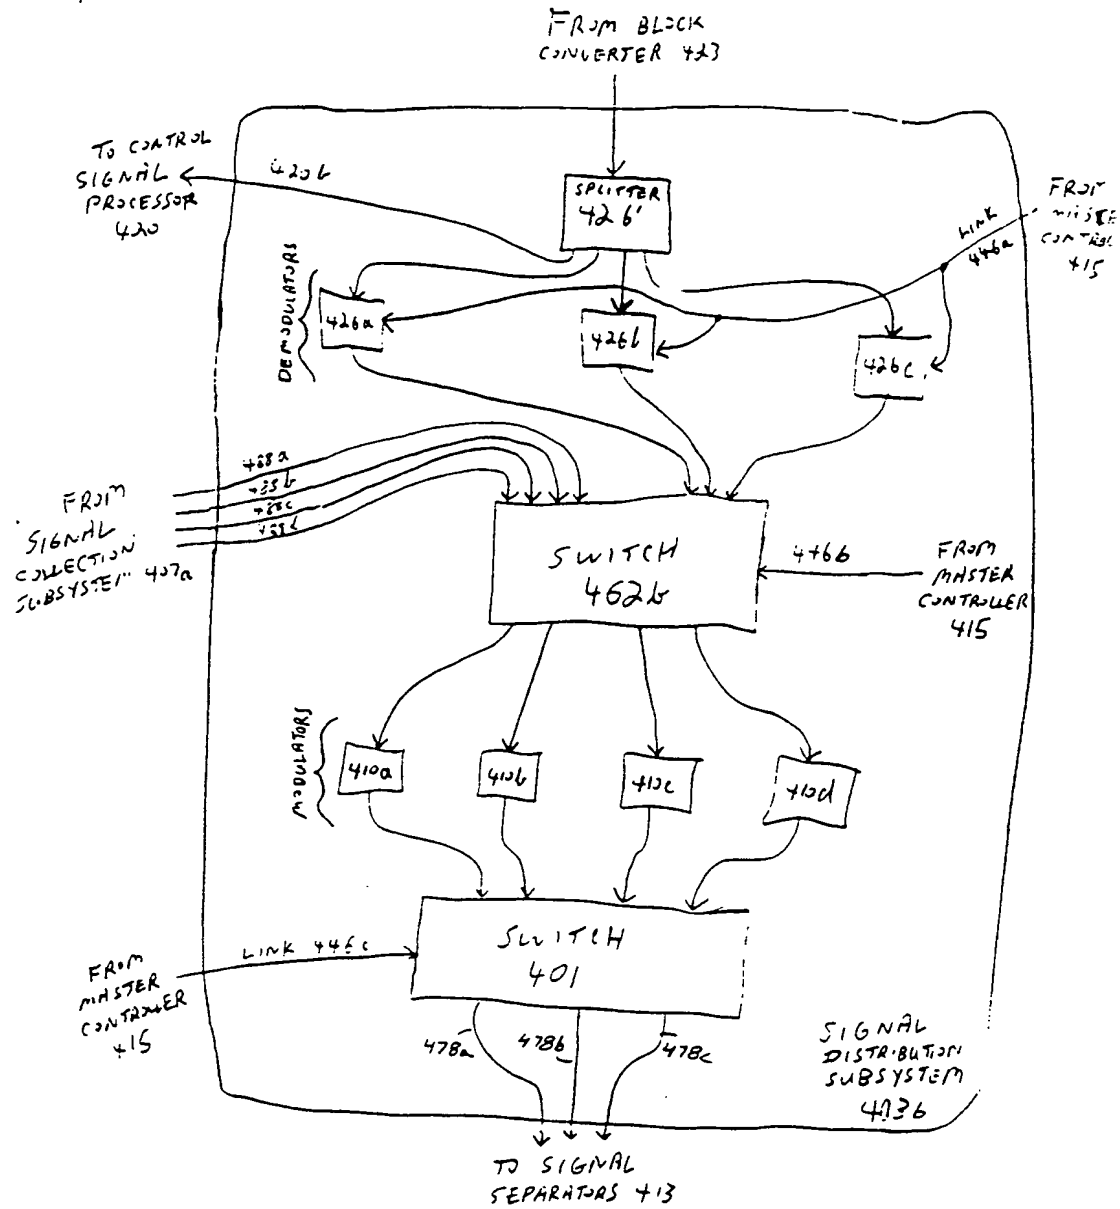 FROM BLOCK
CONVERTER 423
TO CONTROL
SIGNAL
PROCESSOR
420
420b
SPLITTER
426'
FROM
CONTROL
415
LINK
446a
DEMODULATORS
426a
426b
426c
FROM
SIGNAL
COLLECTION
SUBSYSTEM 407a
468a
468b
468c
468d
SWITCH
462b
446b
FROM
MASTER
CONTROLLER
415
MODULATORS
410a
410b
410c
410d
SWITCH
401
LINK 446c
FROM
MASTER
CONTROLLER
415
478a
478b
478c
SIGNAL
DISTRIBUTION
SUBSYSTEM
403b
TO SIGNAL
SEPARATORS 413